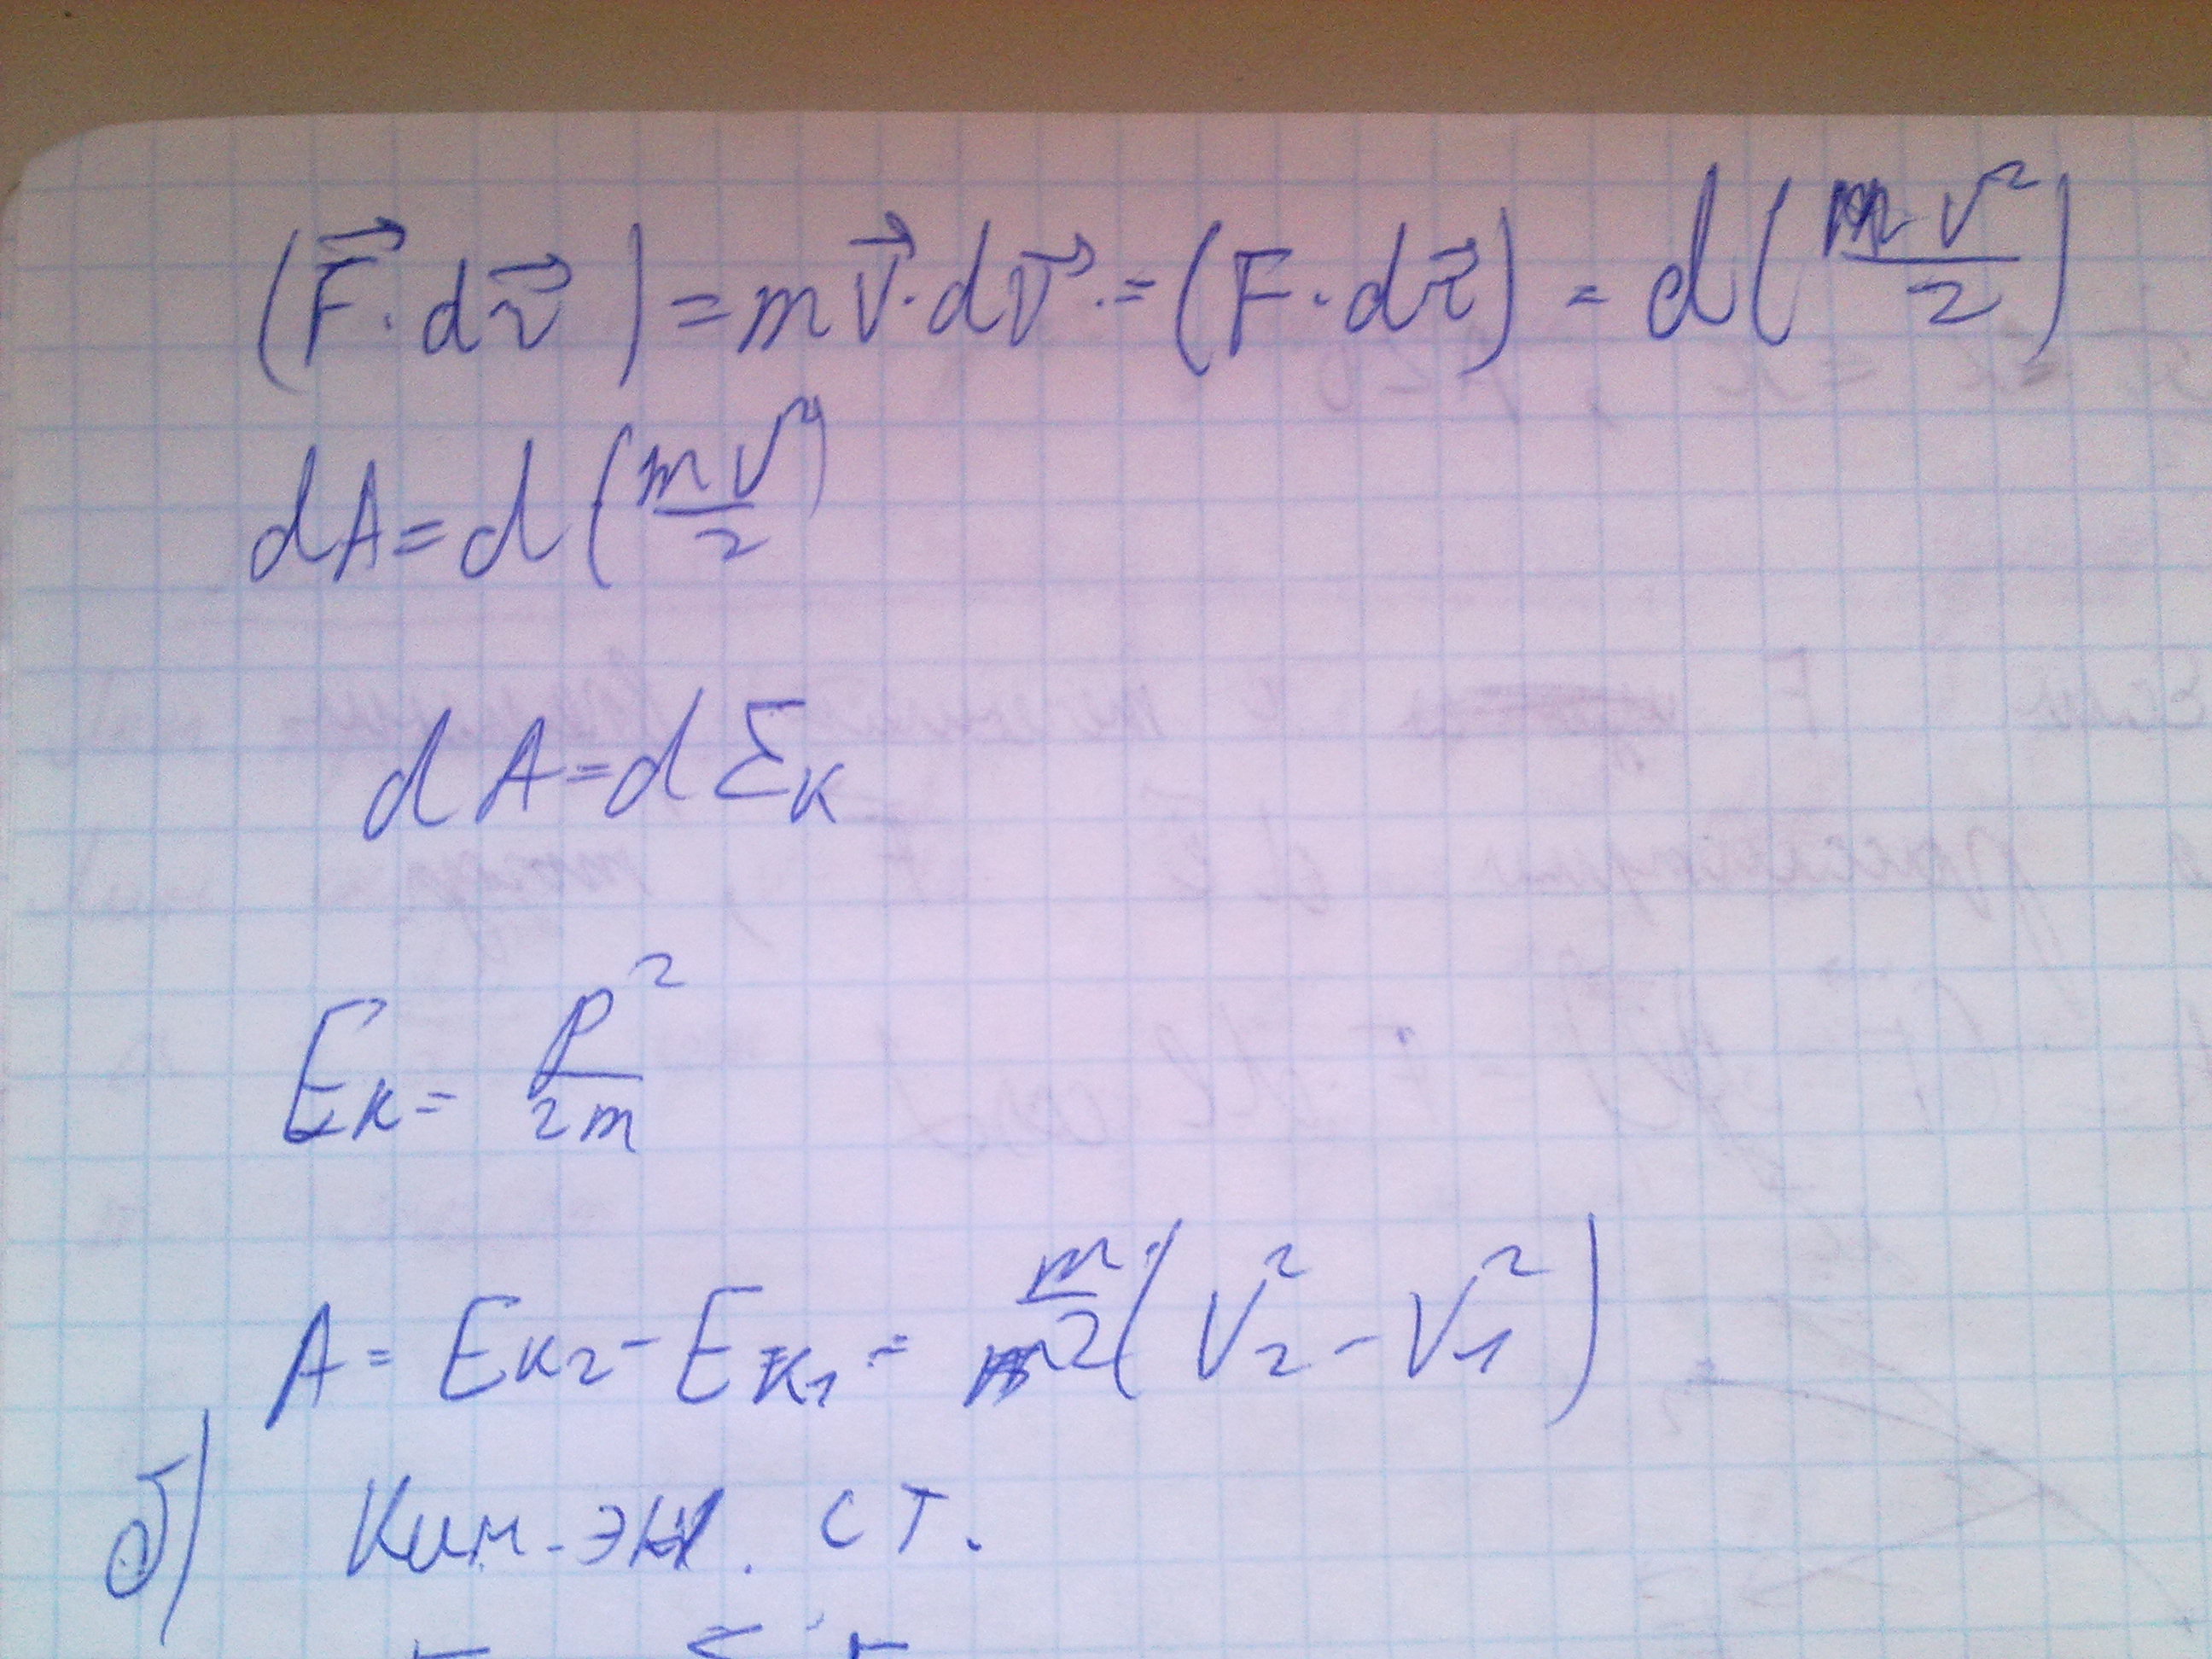 (F⃗·dr⃗) = mV⃗·dV⃗·=(F·dr⃗) = d(mV²/2)
dA=d(mV²/2)
dA=dEк
Eк= P²/2m
A= Eк2-Eк1 = m/2(V₂²-V₁²)
б) Кин. эн. ст.